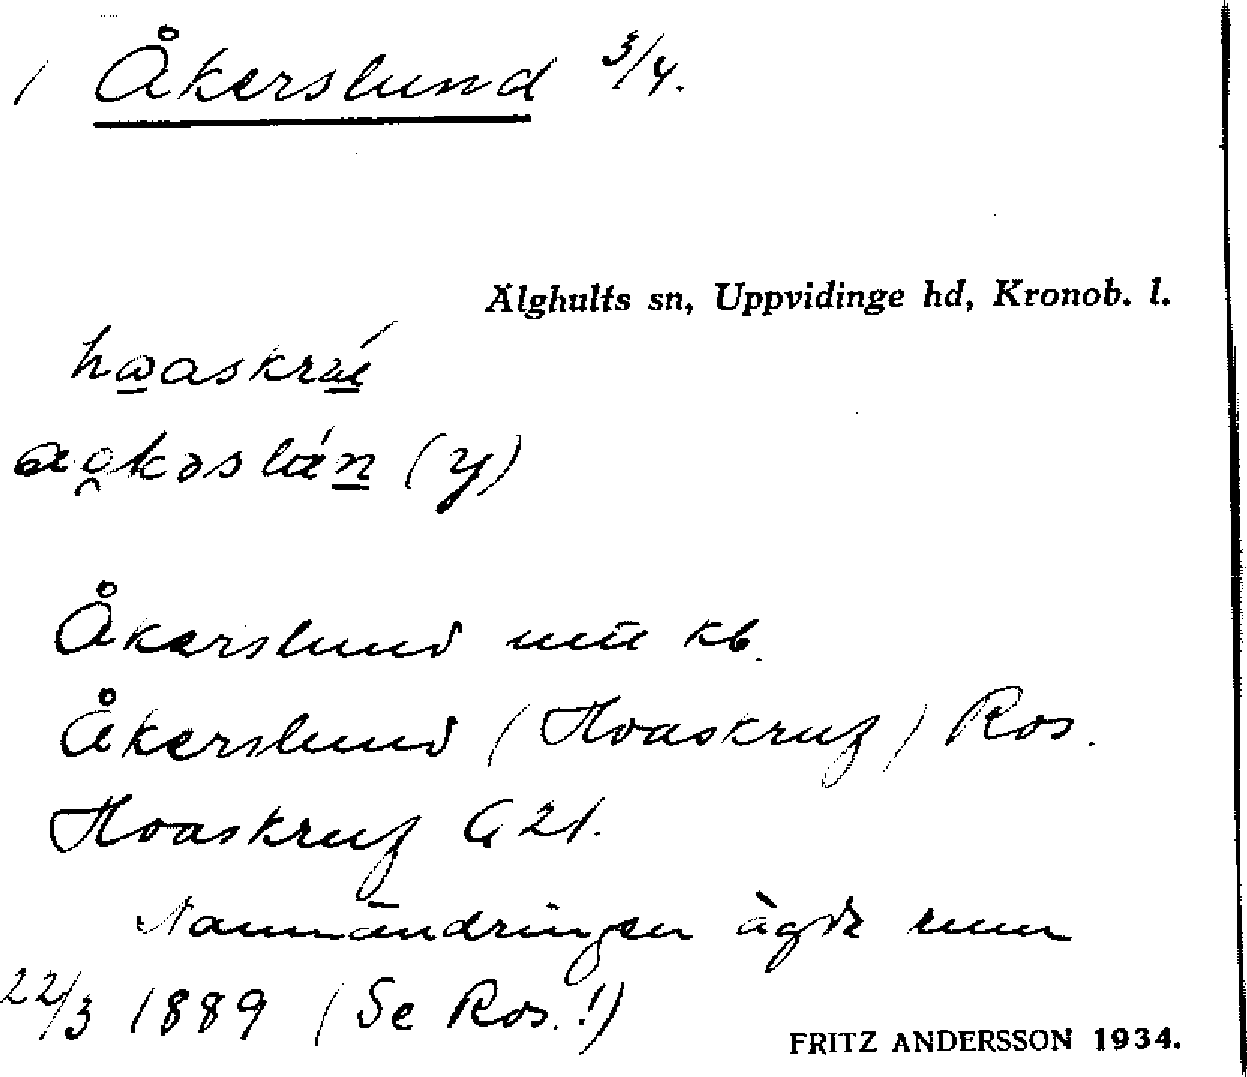 1 Åkerslund 3/4.
Älghults sn, Uppvidinge hd, Kronob. l.
(y)
Åkerslund mtl kb.
Åkerslund (Hvaskruf) Ros.
Hvaskruf G 21.
Namnändringen ägde rum
22/3 1889 (Se Ros.!)
FRITZ ANDERSSON 1934.